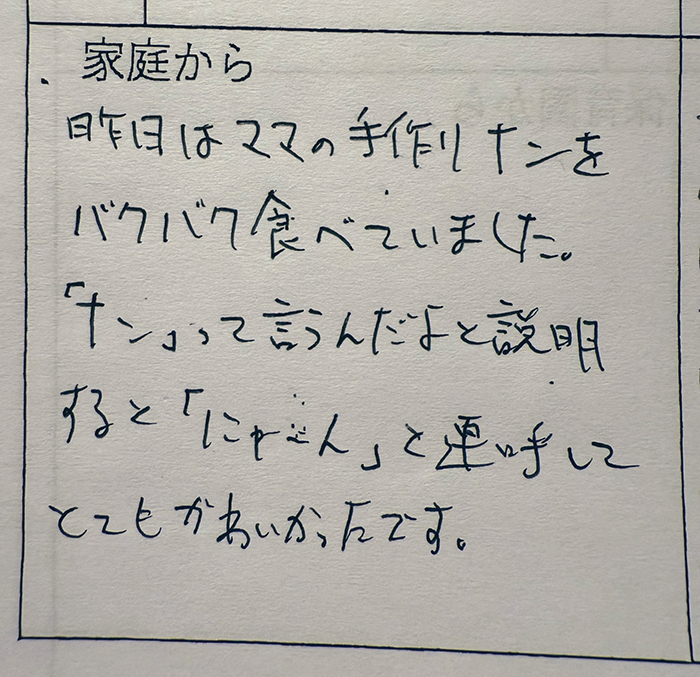 家庭から
昨日はママの手作りナンを
バクバク食べていました。
「ナン」って言うんだよと説明
すると「にゃーん」と連呼して
とてもかわいかったです。